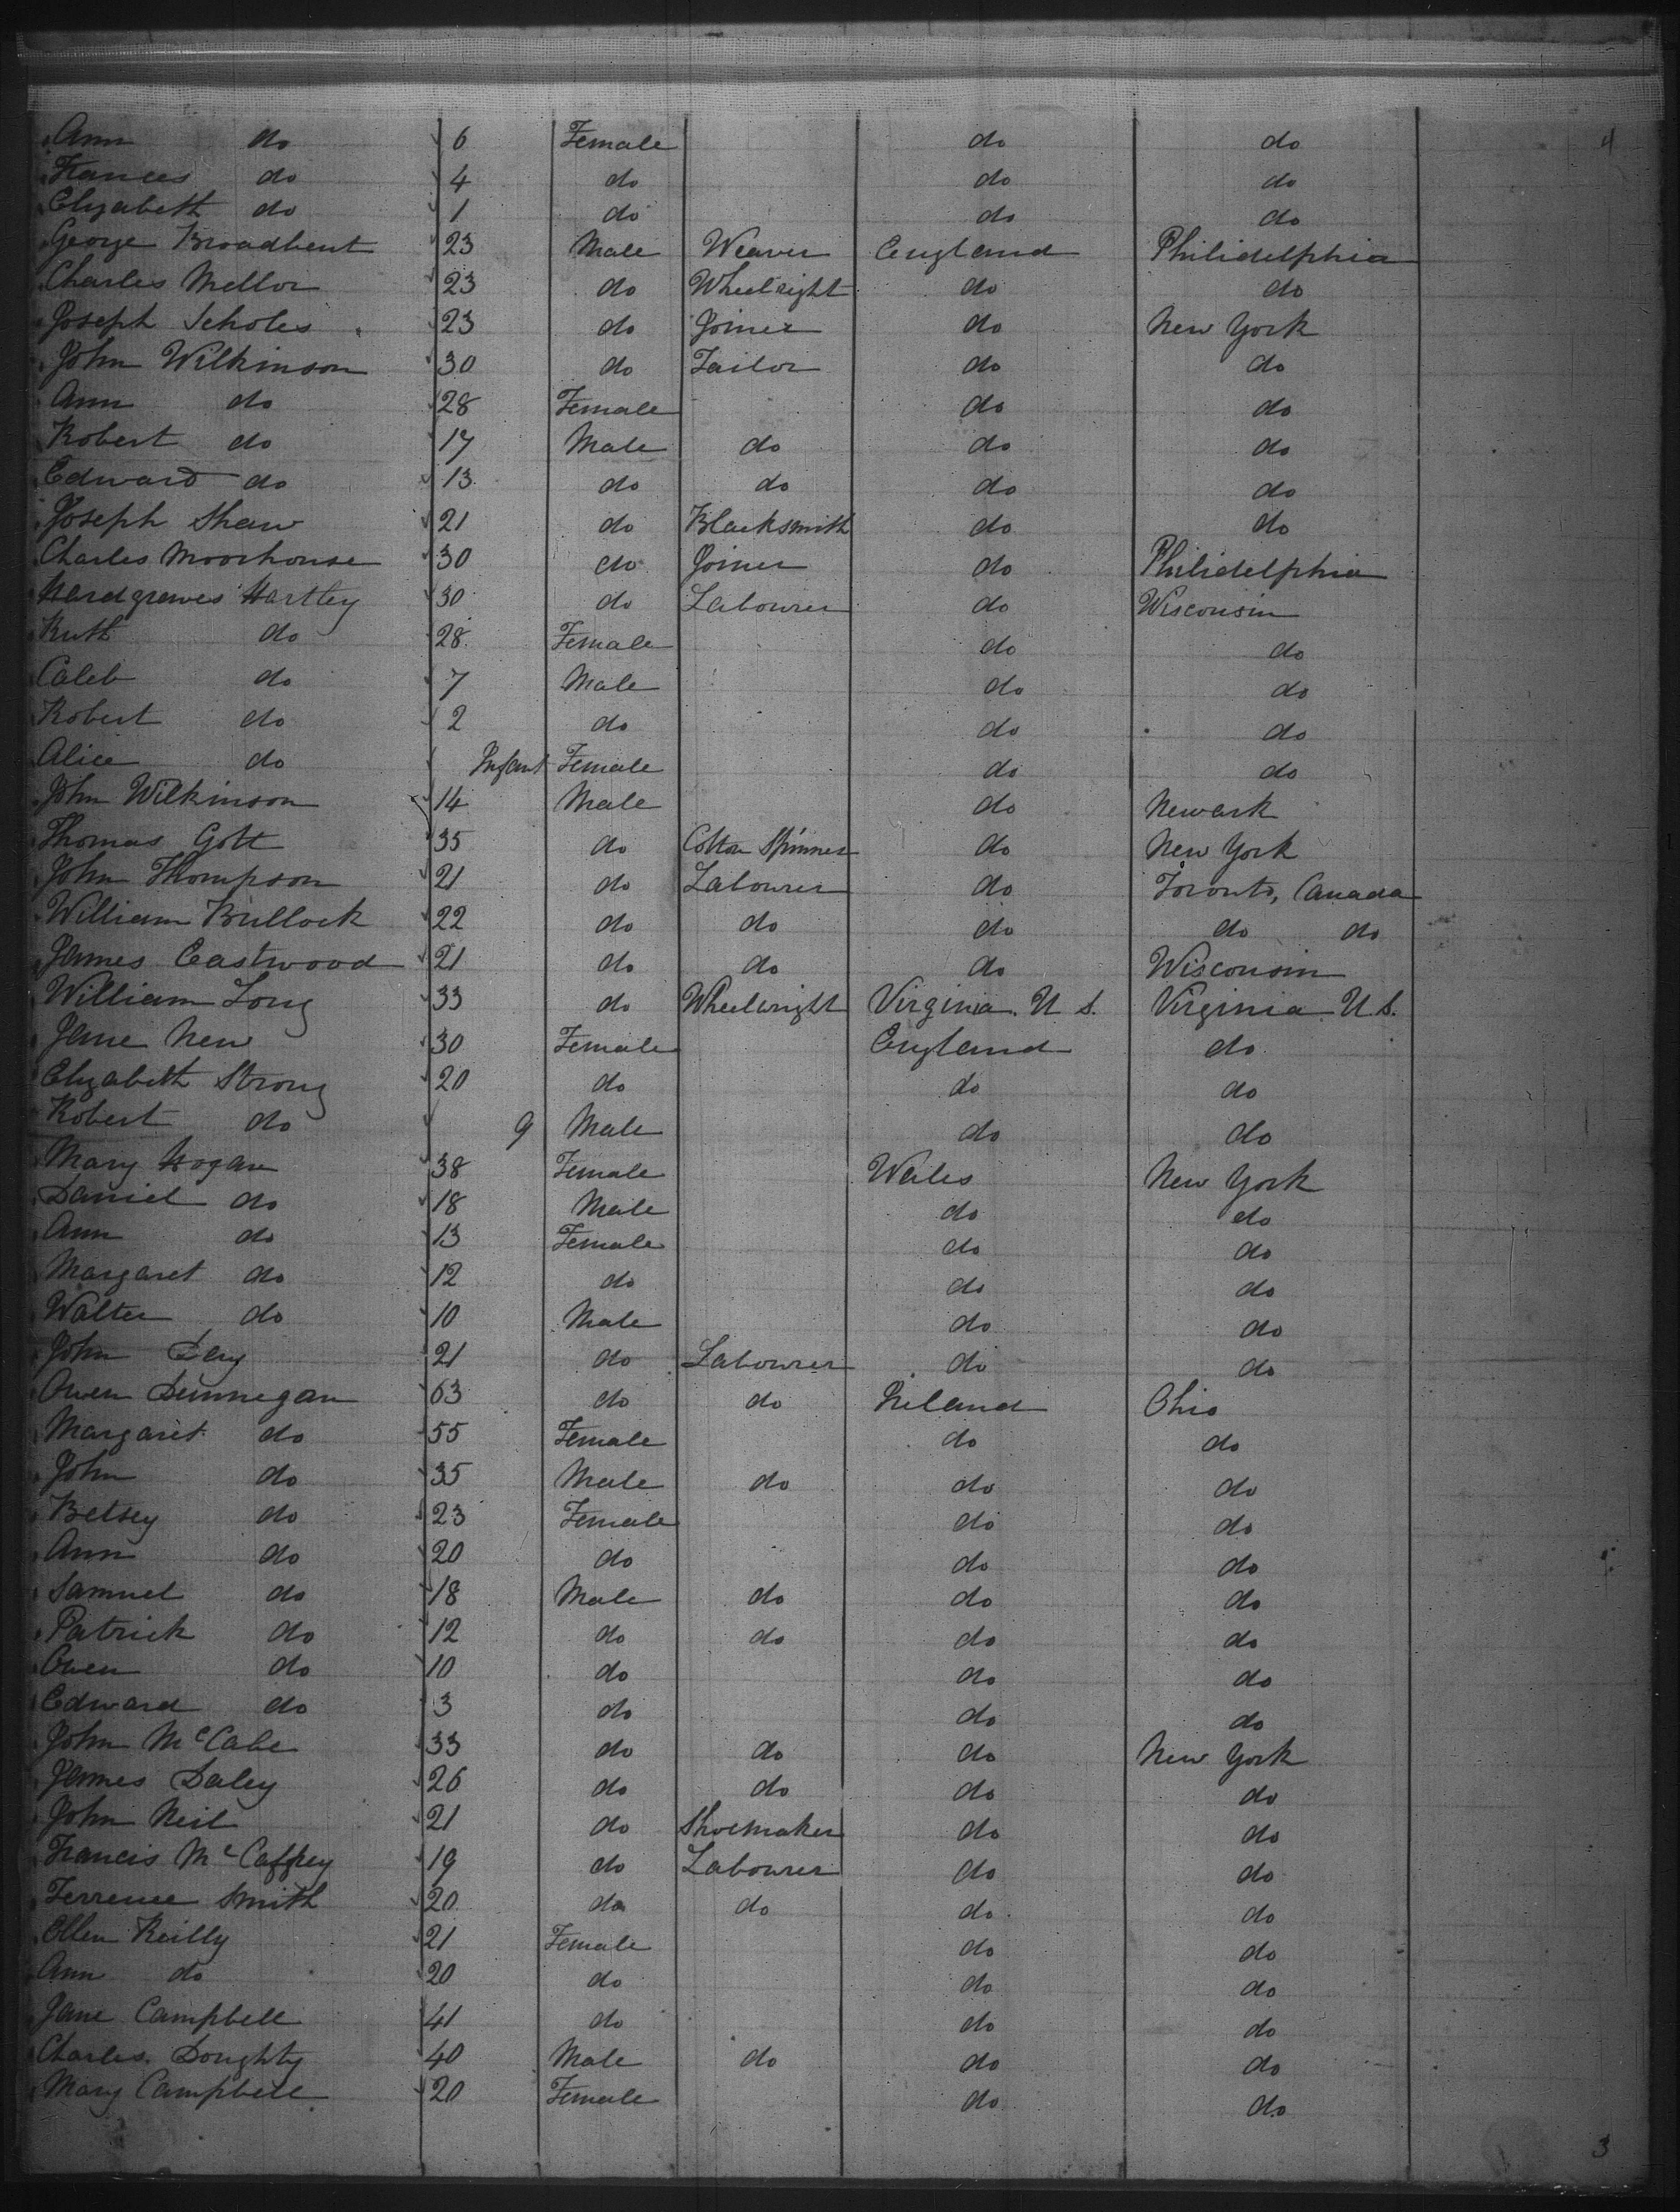 4
Ann do 6 Female do do
Frances do 4 do do do
Elizabeth do 1 do do do
George Broadbent 23 Male Weaver England Philidelphia
Charles Mellor 23 do Wheelright do do
Joseph Scholes 23 do Joiner do New York
John Wilkinson 30 do Tailor do do
Ann do 28 Female do do
Robert do 17 Male do do do
Edward do 13 do do do do
Joseph Shaw 21 do Blacksmith do do
Charles Moorhouse 30 do Joiner do Philidelphia
Hardgraves Hartley 30 do Labourer do Wisconsin
Ruth do 28 Female do do
Caleb do 7 Male do do
Robert do 2 do do do
Alice do Infant Female do do
John Wilkinson 14 Male do Newark
Thomas Gott 35 do Cotton Spinner do New York
John Thompson 21 do Labourer do Toronto, Canada
William Bullock 22 do do do do do
James Eastwood 21 do do do Wisconsin
William Long 33 do Wheelwright Virginia. U S. Virginia U S.
Jane New 30 Female England do
Elizabeth Strong 20 do do do
Robert do 9 Male do do
Mary Hogan 38 Female Wales New York
Daniel do 18 Male do do
Ann do 13 Female do do
Margaret do 12 do do do
Walter do 10 Male do do
John 21 do Labourer do do
Owen Dunnegan 63 do do Ireland Ohio
Margaret do 55 Female do do
John do 35 Male do do do
Betsey do 23 Female do do
Ann do 20 do do do
Samuel do 18 Male do do do
Patrick do 12 do do do do
Owen do 10 do do do
Edward do 3 do do do
John McCabe 33 do do do New York
James Daley 26 do do do do
John Neil 21 do Shoemaker do do
Francis McCaffrey 19 do Labourer do do
Terrence Smith 20 do do do do
Ellen Reilly 21 Female do do
Ann do 20 do do do
Jane Campbell 41 do do do
Charles Doughty 40 Male do do do
Mary Campbell 20 Female do do
3